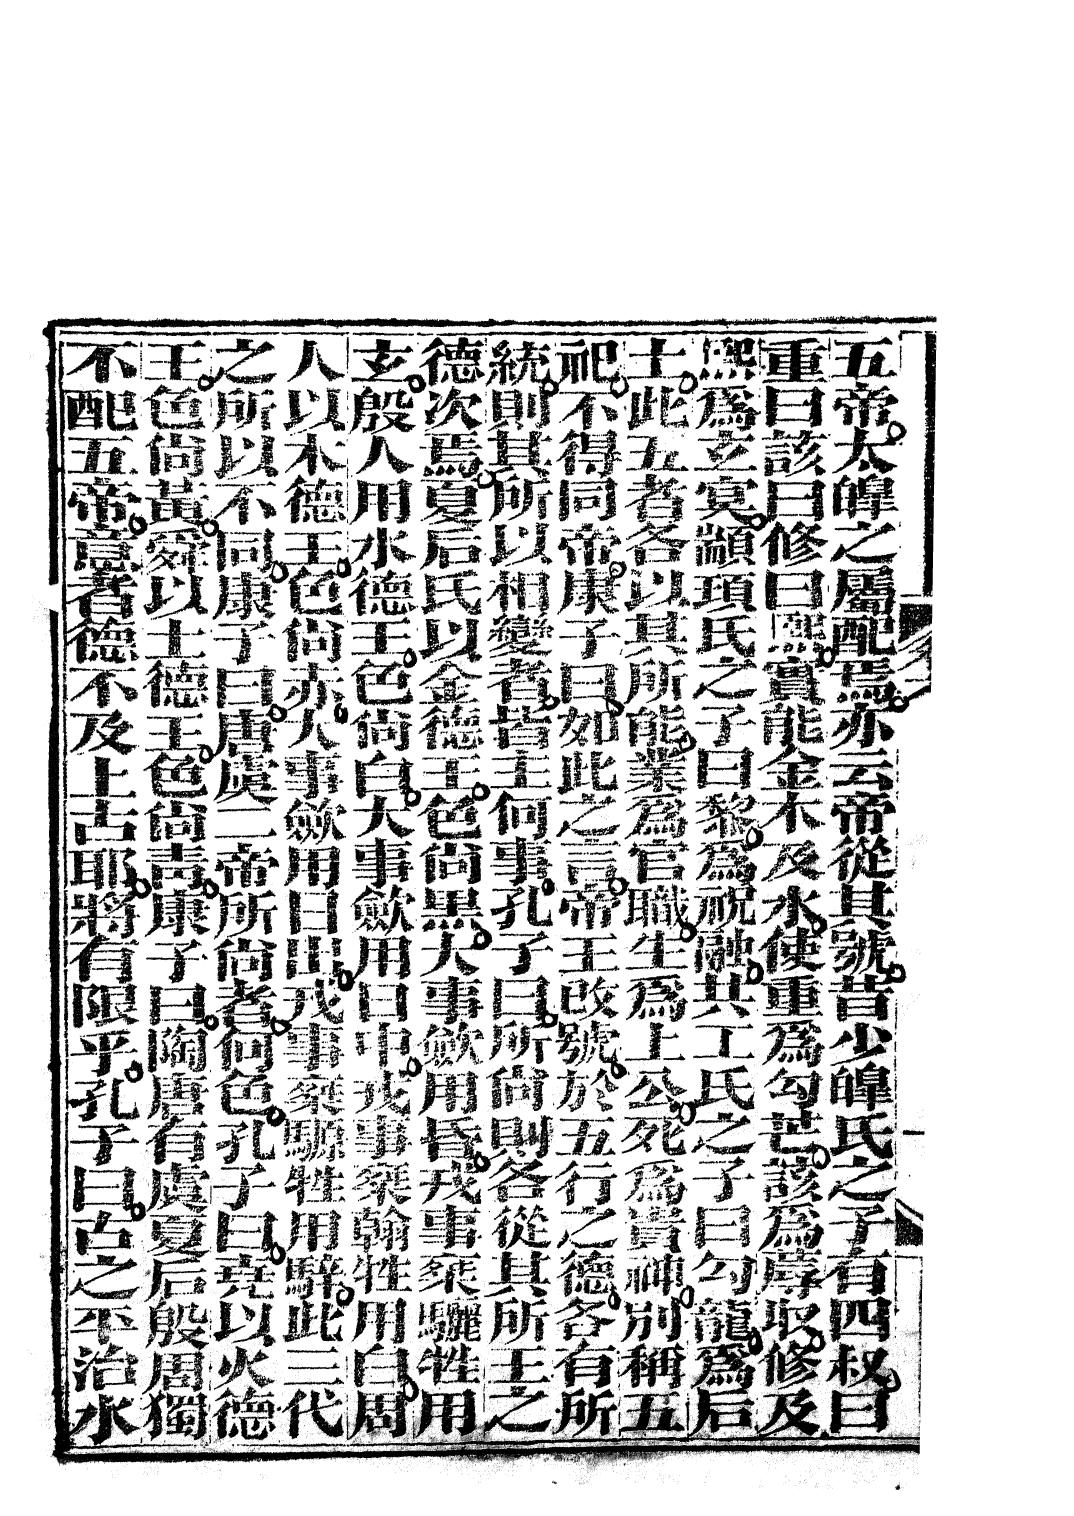 五帝太皥之屬配焉亦云帝從其號昔少皥氏之子有四叔曰
重曰該曰修曰熙實能金木及水使重為勾芒該為蓐收修及
熙為玄冥顓頊氏之子曰黎為祝融共工氏之子曰勾龍為后
土此五者各以其所能業為官職生為上公死為貴神別稱五
祀不得同帝康子曰如此之言帝王改號於五行之德各有所
統則其所以相變者皆主何事孔子曰所尚則各從其所王之
德次焉夏后氏以金德王色尚黑大事歛用昏戎事乗驪牲用
玄殷人用水德王色尚白大事歛用日中戎事乗翰牲用白周
人以木德王色尚赤大事歛用日出戎事乗騵牲用騂此三代
之所以不同康子曰唐虞二帝所尚者何色孔子曰堯以火德
王色尚黃舜以土德王色尚青康子曰陶唐有虞夏后殷周獨
不配五帝意者德不及上古耶將有限乎孔子曰古之平治水